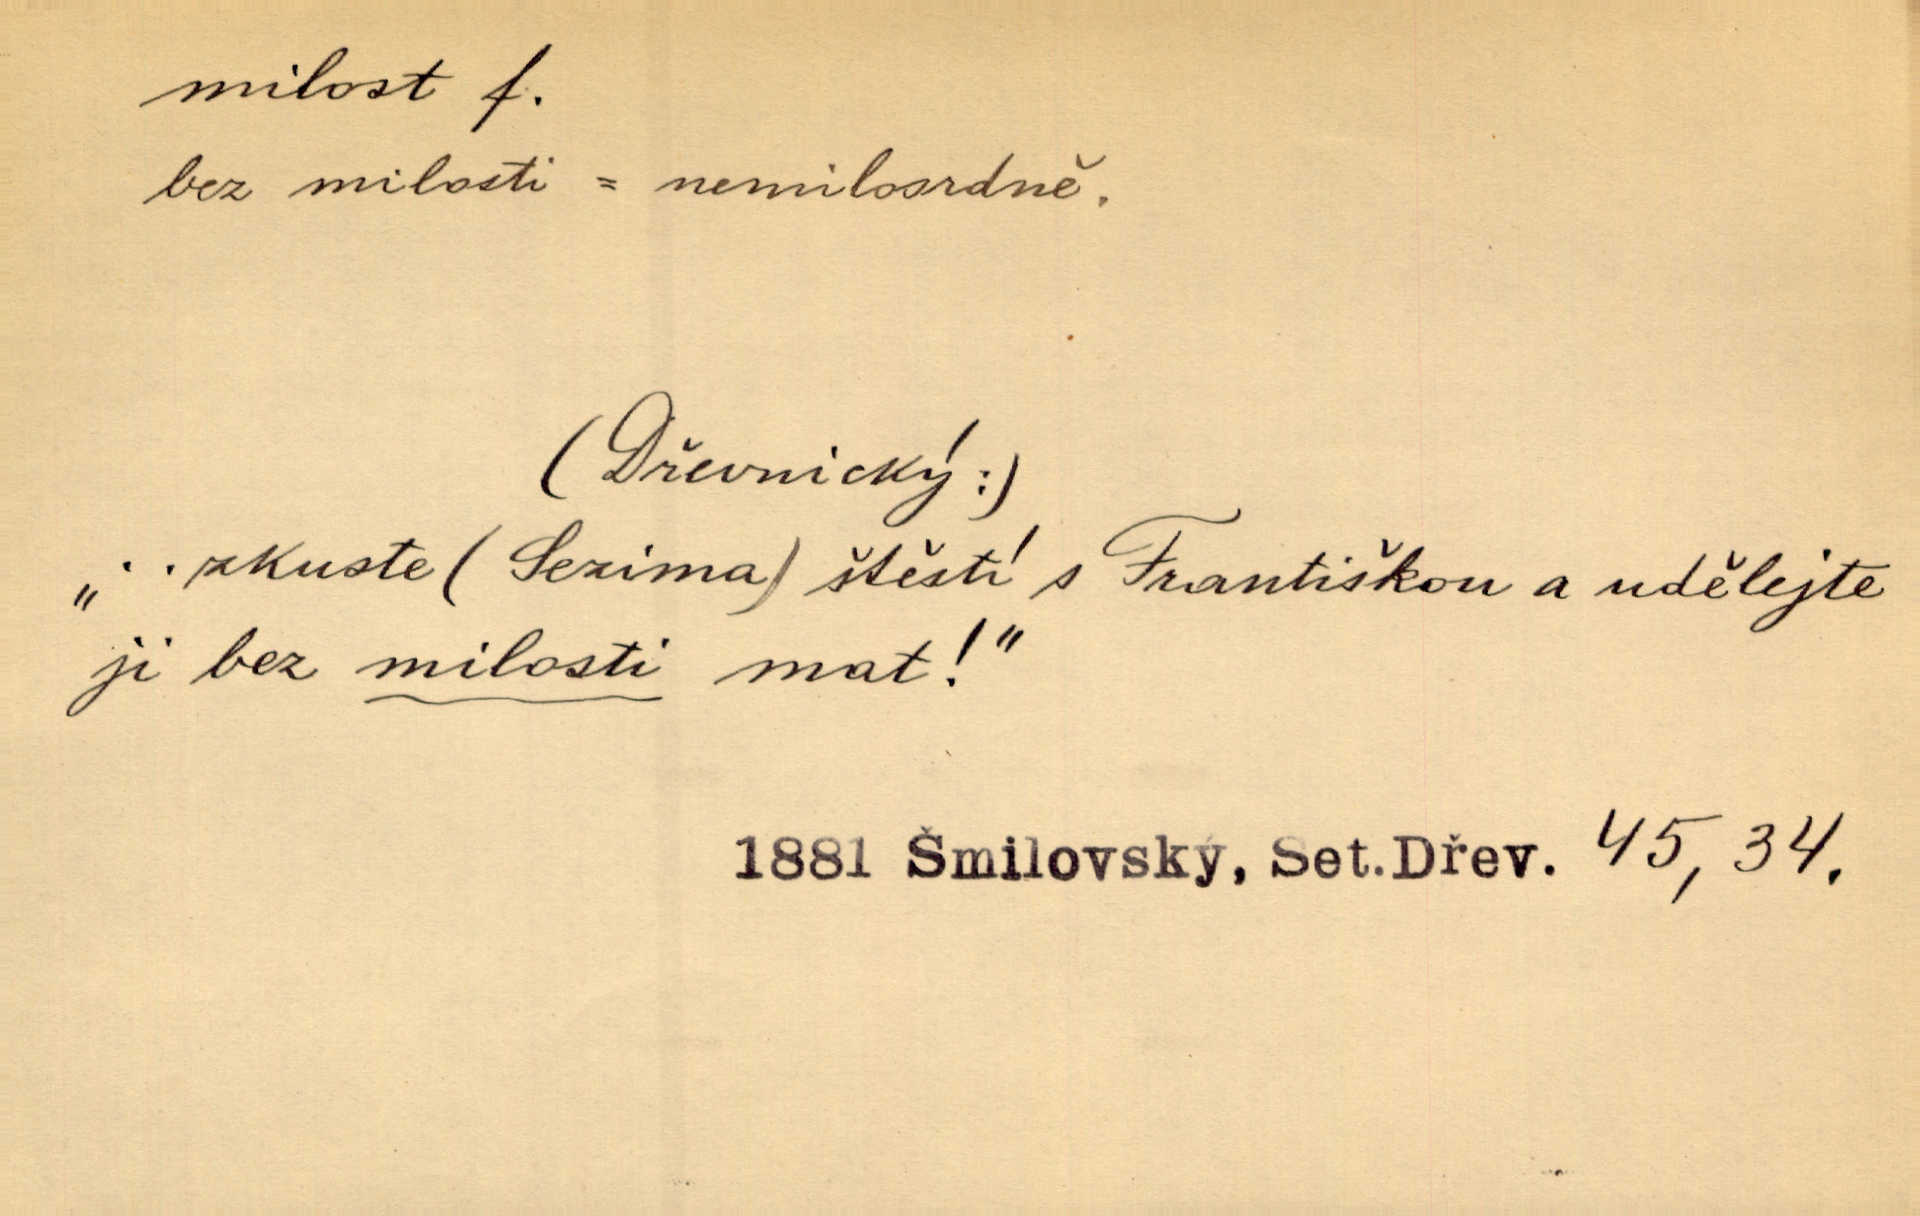 milost f.
bez milosti = nemilosrdně.
(Dřevnický:)
„.. zkuste (Sezima) štěstí s Františkou a udělejte
ji bez milosti mat!"
1881 Šmilovský, Set.Dřev. 45, 34.